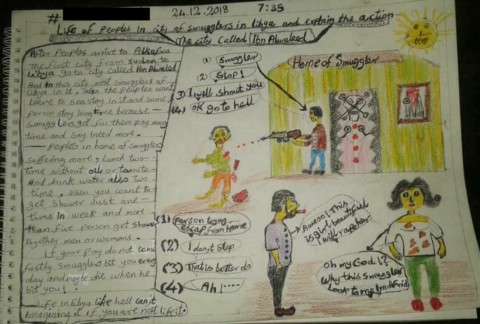 #
24.12.2018
7:35
Life of Peoples in city of smugglers in Libya and explain the action
The city called Ben Alwaleed
After Peoples arrive to Alkufra
The first city from sudan to
Libya go to city called Ben Alwaleed
But in this city most smugglers at
Libya in take the Peoples want
leave to sea stay in it and some
person stay long time because
Smugglers got for them pay many
time and say need more.
Peoples in home of smuggler
suffering more, Lunch two-
time without oil or tomato
And drink water also two
time, when you want to
get shower Just one
time in week and more
than five person get shower
together men or womens.
If your pay do not come
fastly smugglers hit you every
day and maybe die when he
hit you!
Life in Libya like hell can't
imagining it if you are not life it.
(1) Smuggler
(2) Stop!
(3) I will shout you
(4) OK go to hell
Home of Smuggler
(1) person trying escap from home
(2) I don't stop
(3) That is better do
(4) Ah!....
This
is girl beautiful
I will rape her
oh my God!?
Why this smuggler
Look to my